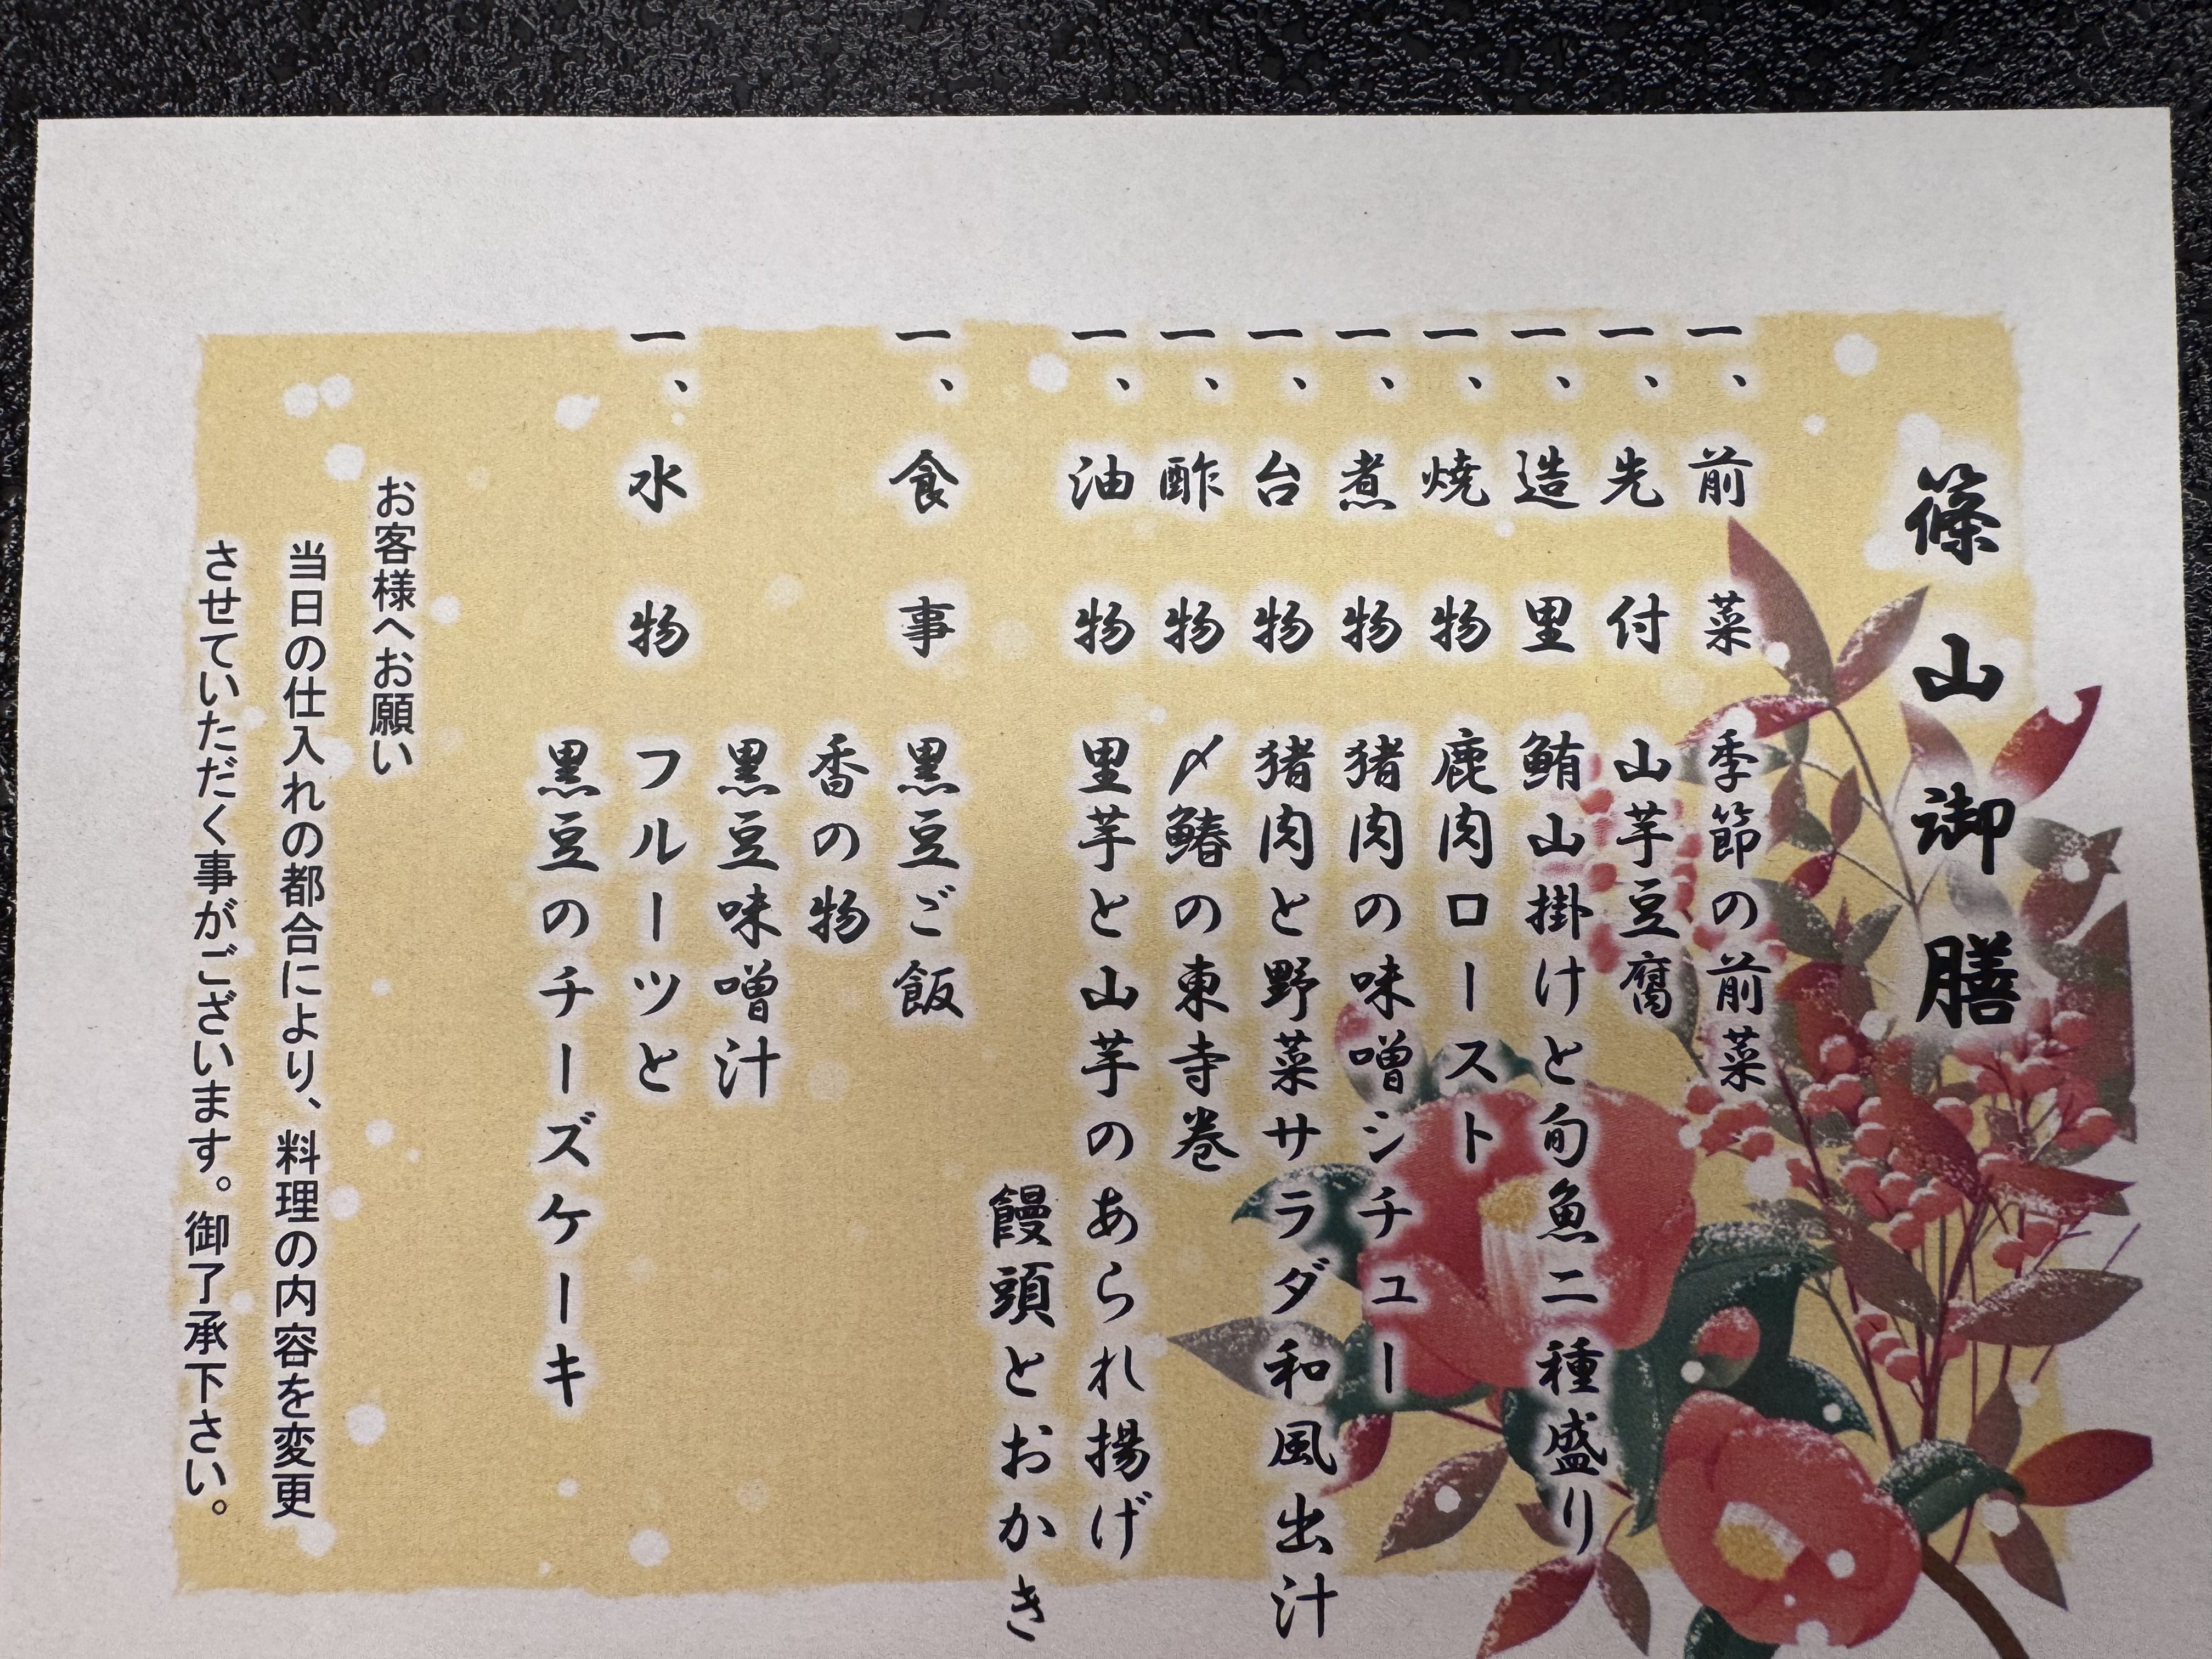 篠山御膳
一、前菜 季節の前菜
一、先付 山芋豆腐
一、造里 鮪山掛けと旬魚二種盛り
一、焼物 鹿肉ロースト
一、煮物 猪肉の味噌シチュー
一、台物 猪肉と野菜サラダ和風出汁
一、酢物 〆鰆の東寺巻
一、油物 里芋と山芋のあられ揚げ
饅頭とおかき
一、食事 黒豆ご飯
香の物
黒豆味噌汁
一、水物 フルーツと
黒豆のチーズケーキ
お客様へお願い
当日の仕入れの都合により、料理の内容を変更
させていただく事がございます。御了承下さい。